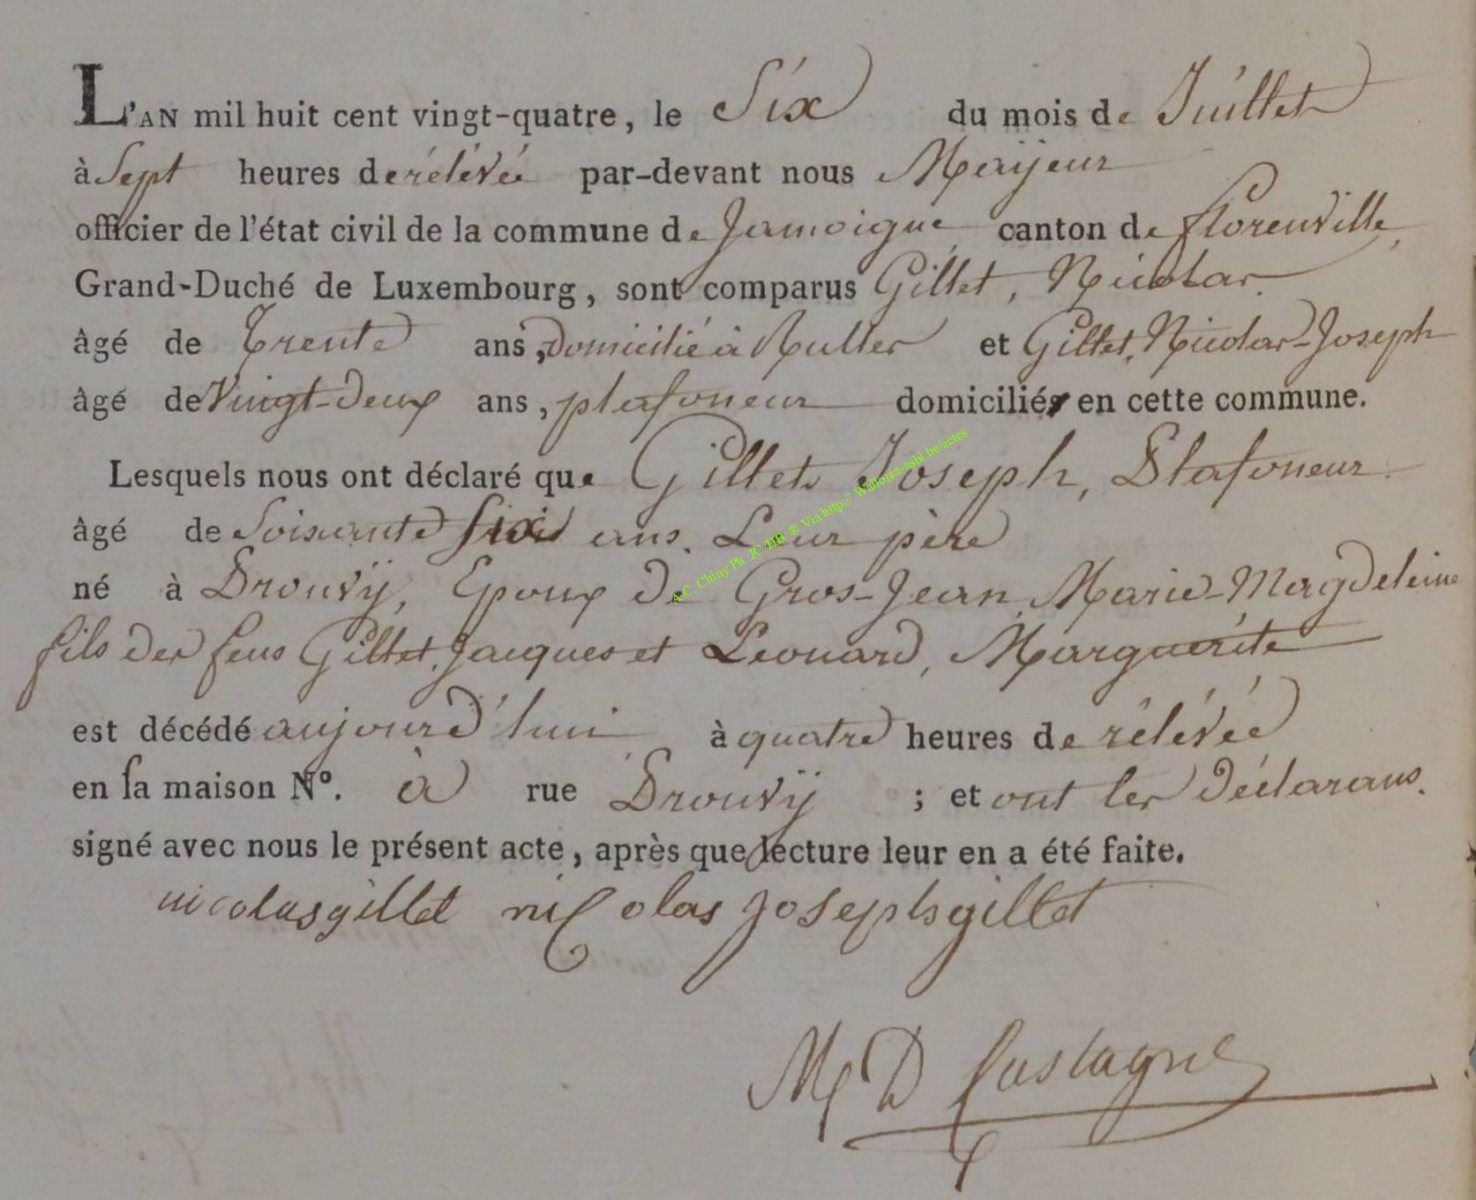 L'AN mil huit cent vingt-quatre, le Six du mois de Juillet
à Sept heures de rélévée par-devant nous Maÿeur
officier de l'état civil de la commune de Jamoigne canton de florenville,
Grand-Duché de Luxembourg, sont comparus Gillet, Nicolas.
âgé de Trente ans, Domicilié à Rulles et Gillet, Nicolas-Joseph
âgé de Vingt-Deux ans, plafoneur domicilié en cette commune.
Lesquels nous ont déclaré que Gillet Joseph, Plafoneur
âgé de Soixante six ans. Leur père
né à Prouvÿ, Epoux De Gros-Jean Marie-Magdeleine
fils des feus Gillet, Jacques et Leonard, Marguérite
est décédé aujourd'hui à quatre heures de rélévée
en sa maison N°. à rue Prouvÿ ; et ont les Déclarans.
signé avec nous le présent acte, après que lecture leur en a été faite.
nicolas gillet nicolas Joseph gillet
M D Castagne
A.C. Chiny Ph. JC ® Via http:// Wallonia-asbl.be/actes